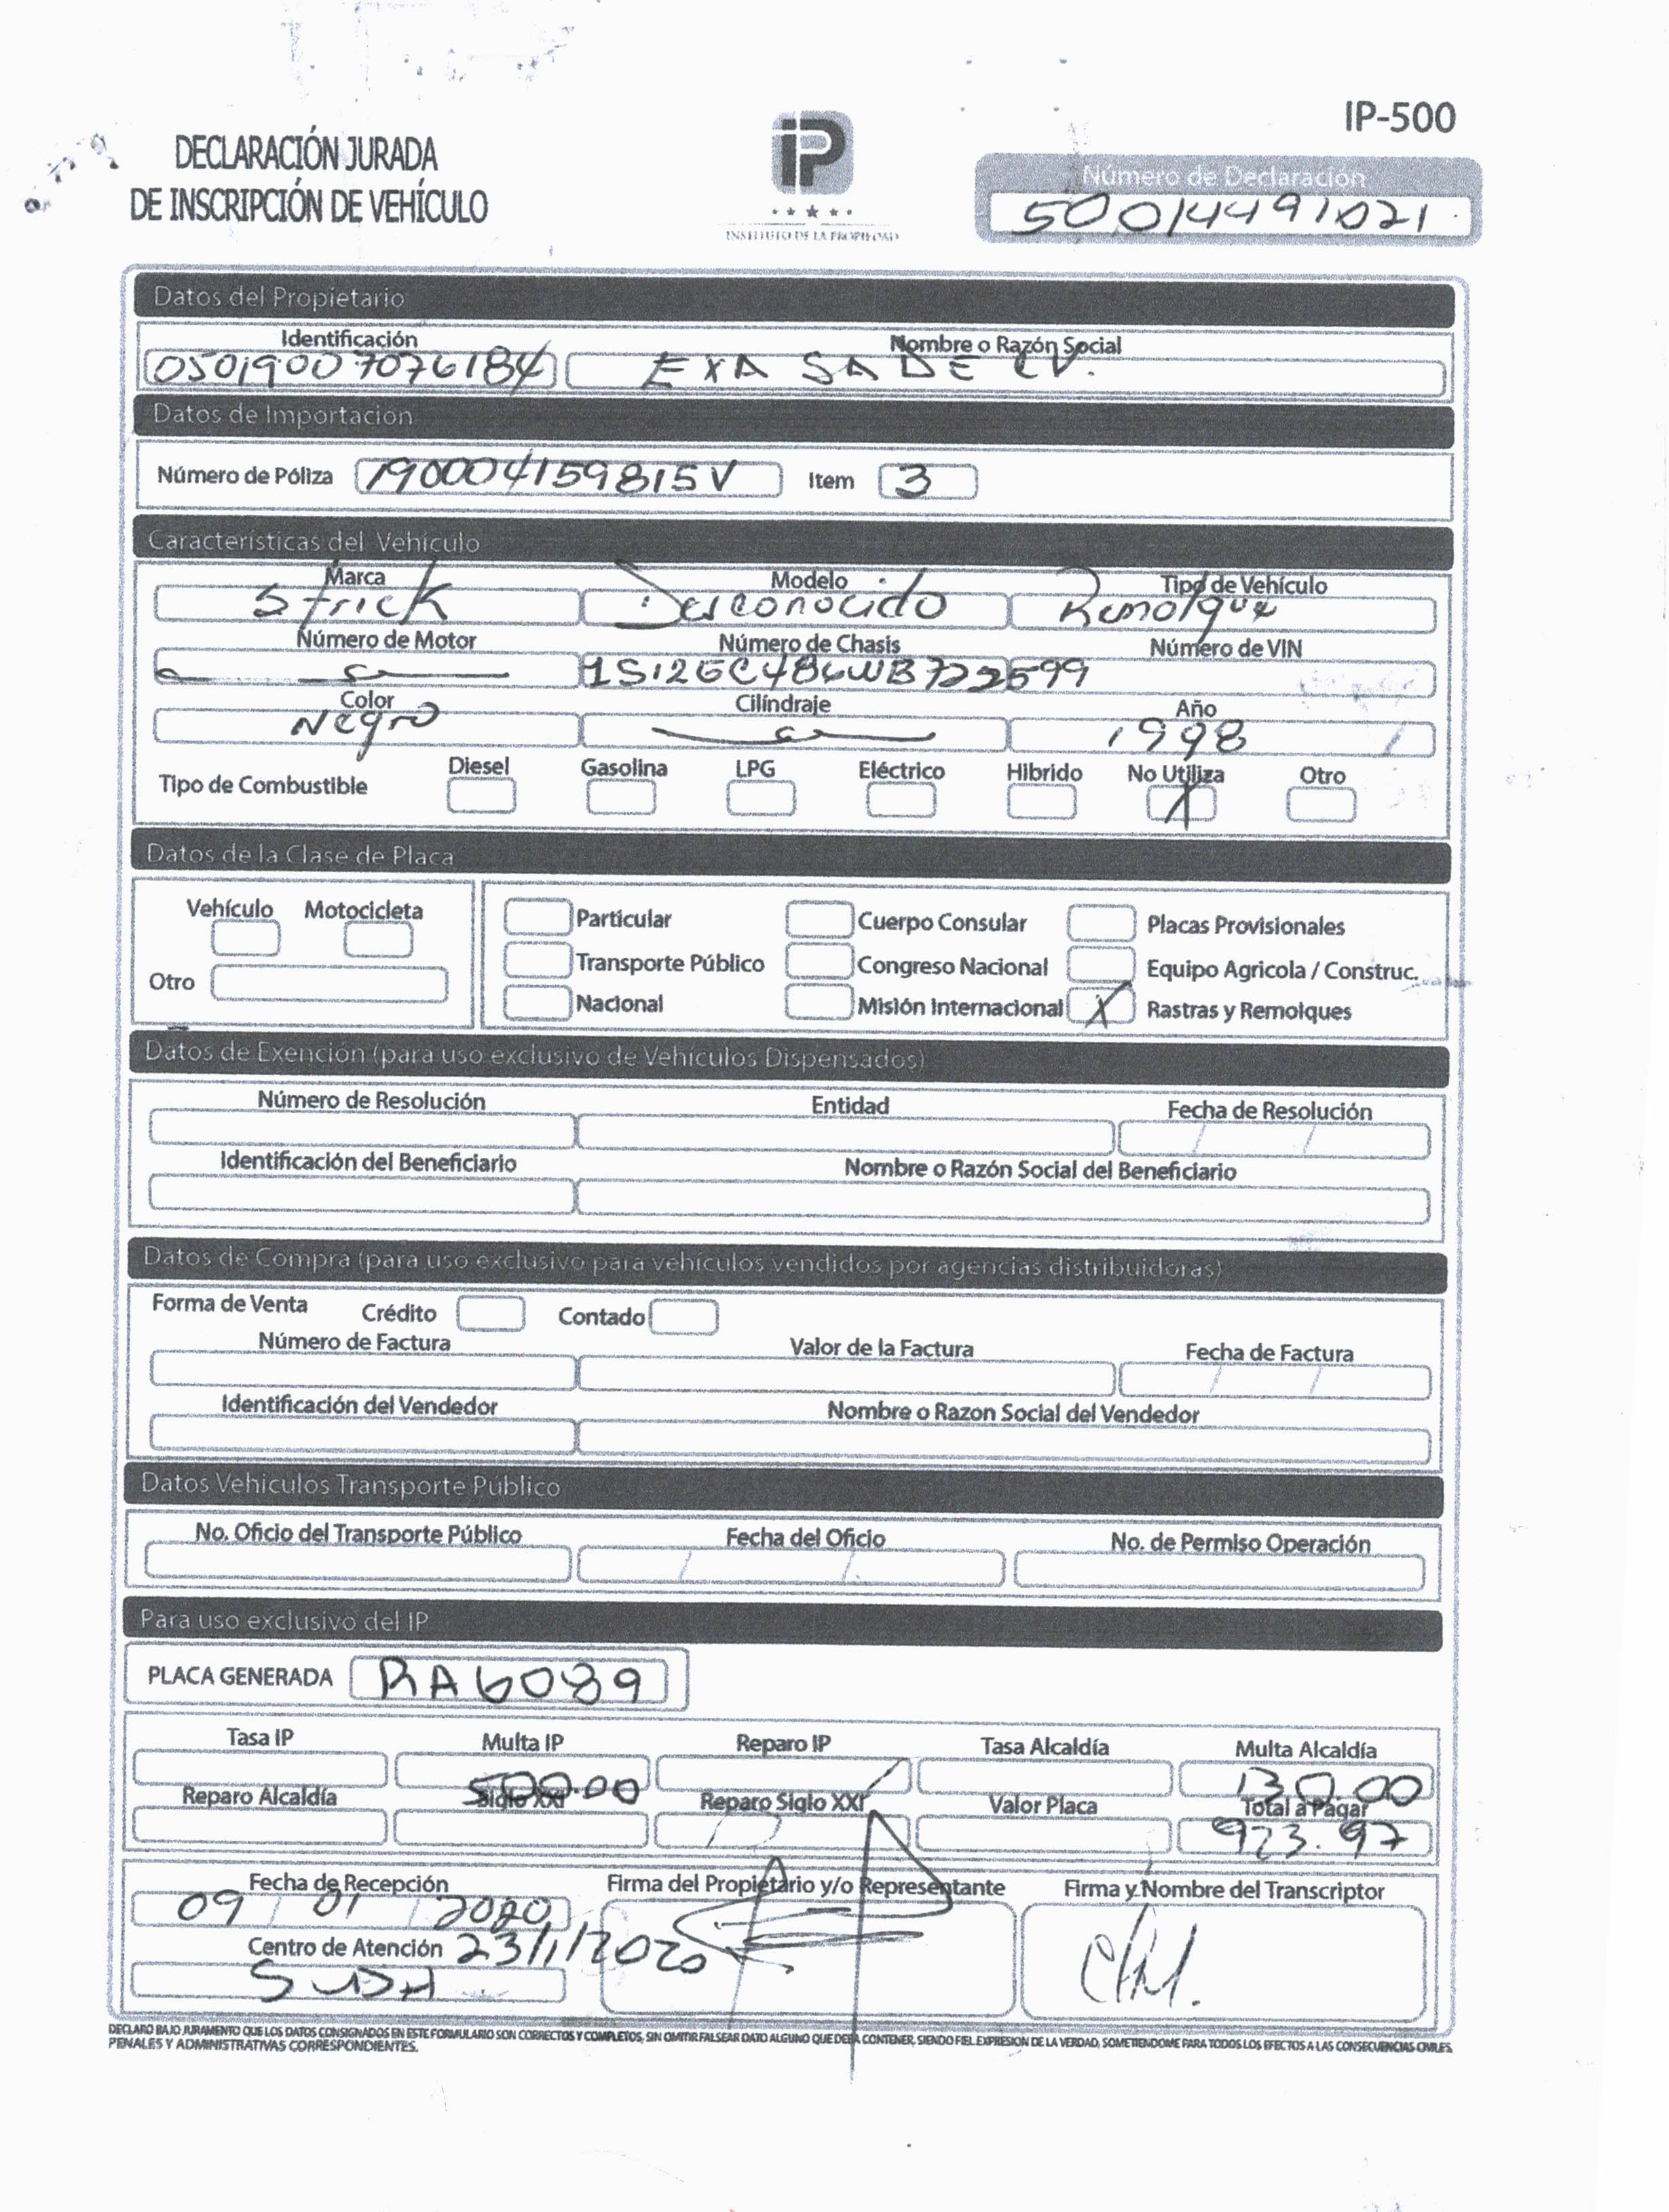 IP-500
DECLARACIÓN JURADA
DE INSCRIPCIÓN DE VEHÍCULO
iP
INSTITUTO DE LA PROPIEDAD
Número de Declaración
50014491021
Datos del Propietario
Identificación Nombre o Razón Social
05019007076184 EXA SA DE CV.
Datos de Importacion
Número de Póliza 190004159815V Item 3
Características del Vehículo
Marca Modelo Tipo de Vehículo
Strick Desconocido Remolque
Número de Motor Número de Chasis Número de VIN
1S12EC486WB722599
Color Cilindraje Año
Negro 1998
Tipo de Combustible Diesel Gasolina LPG Eléctrico Hibrido No Utiliza Otro
X
Datos de la Clase de Placa
Vehículo Motocicleta
Otro
Particular Cuerpo Consular Placas Provisionales
Transporte Público Congreso Nacional Equipo Agricola / Construc.
Nacional Misión Internacional X Rastras y Remolques
Datos de Exención (para uso exclusivo de Vehículos Dispensados)
Número de Resolución Entidad Fecha de Resolución
/ /
Identificación del Beneficiario Nombre o Razón Social del Beneficiario
Datos de Compra (para uso exclusivo para vehículos vendidos por agencias distribuidoras)
Forma de Venta Crédito Contado
Número de Factura Valor de la Factura Fecha de Factura
/ /
Identificación del Vendedor Nombre o Razon Social del Vendedor
Datos Vehiculos Transporte Público
No. Oficio del Transporte Público Fecha del Oficio No. de Permiso Operación
/ /
Para uso exclusivo del IP
PLACA GENERADA RA6089
Tasa IP Multa IP Reparo IP Tasa Alcaldía Multa Alcaldía
500.00 130.00
Reparo Alcaldía Siglo XXI Reparo Siglo XXI Valor Placa Total a Pagar
923.97
Fecha de Recepción Firma del Propietario y/o Representante Firma y Nombre del Transcriptor
09 / 01 / 2020
Centro de Atención 23/1/2020
DECLARO BAJO JURAMENTO QUE LOS DATOS CONSIGNADOS EN ESTE FORMULARIO SON CORRECTOS Y COMPLETOS, SIN OMITIR FALSEAR DATO ALGUNO QUE DEBA CONTENER, SIENDO FIEL EXPRESION DE LA VERDAD, SOMETIENDOME PARA TODOS LOS EFECTOS A LAS CONSECUENCIAS CIVILES,
PENALES Y ADMINISTRATIVAS CORRESPONDIENTES.